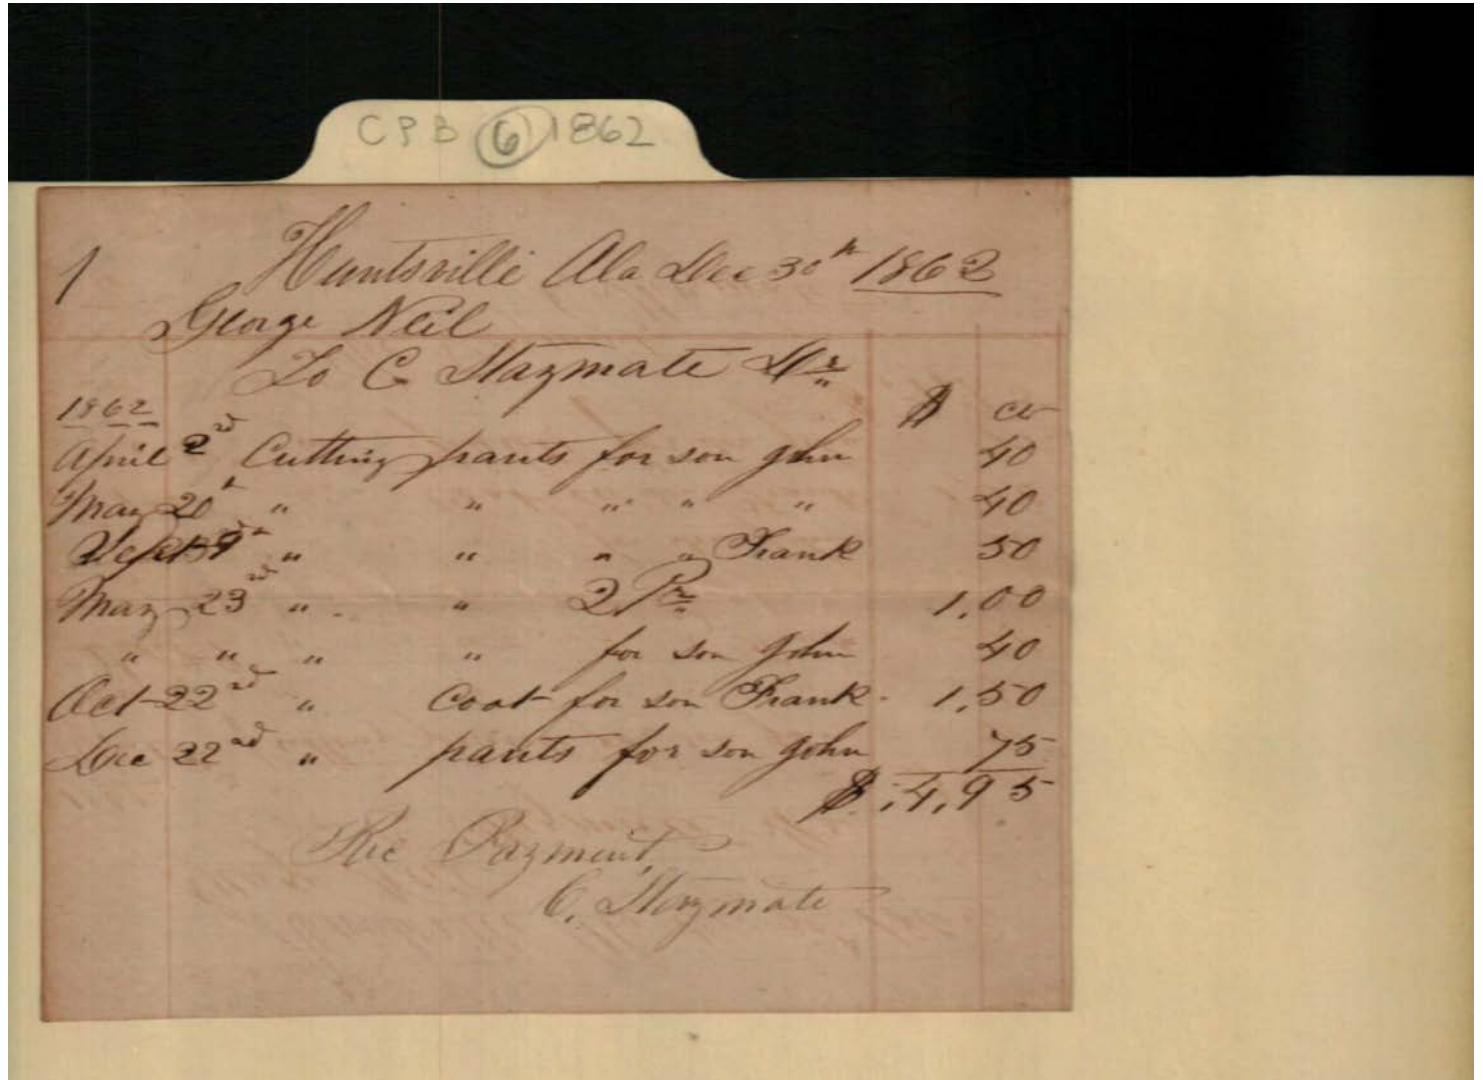 CPB 6 1862
1 Huntsville Ala Dec 30th 1862
George Neil
To C Staymate Dr
1862 $ cts
April 2nd Cutting pants for son John 40
May 20th " " " " " 40
Sept 9th " " " " Frank 50
May 23rd " " 2 Pr 1,00
" " " " for son John 40
Oct 22nd " Coat for son Frank 1,50
Dec 22nd " pants for son John 75
$ 4,95
Rec Payment,
C. Staymate